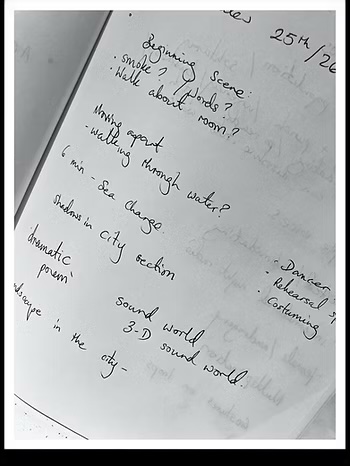 25th/26
Beginning Scene:
· smoke? / Words?
· Walk about room?
Moving apart
- Walking through water?
6 min - Sea Change
shadows in city section
dramatic
poem
in the city -
sound world
3-D sound world.
· Dancer
· Rehearsal
· Costuming